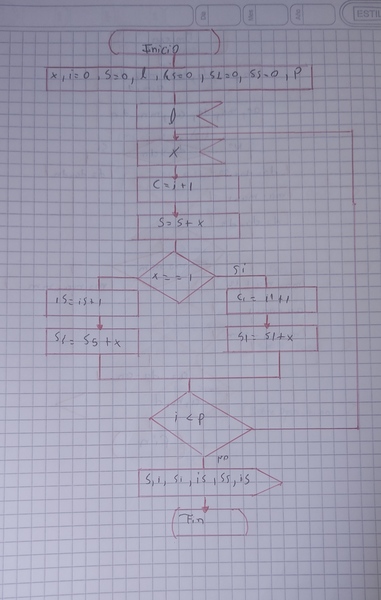 ESTE
Inicio
x, i=0, S=0, l, is=0, si=0, ss=0, P
l
x
C=i+1
S=S+x
x==1
Si
is=is+1
Si=Ss+x
Si=S1+x
i<P
no
S,i,si,is,ss,is
Fin